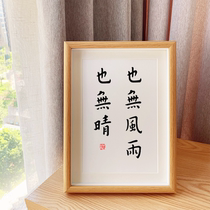 也無風雨
也無晴